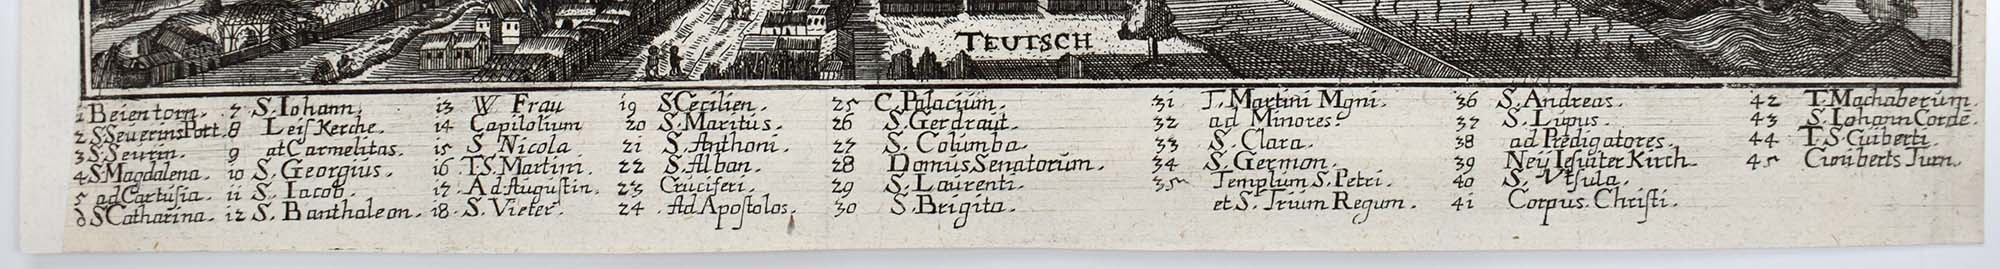 TEUTSCH
1 Beientorn.
2 S.SeuerinsPort.
3 S.Seurin.
4 S.Magdalena.
5 ad Cartusia.
6 S Catharina.
7 S. Iohann.
8 Leis Kerche.
9 at Carmelitas.
10 S. Georgius.
11 S. Iacob.
12 S. Banthaleon.
13 W Frau
14 Capilolium
15 S Nicola
16 T.S. Martini.
17 Ad Augustin.
18. S. Vieter.
19 S Cecilien.
20 S. Maritus.
21 S. Anthoni.
22 S. Alban.
23 Cruciferi.
24 Ad Apostolos.
25 C. Palacium.
26 S. Gerdraut.
27 S. Columba.
28 Domus Senatorum.
29 S. Laurenti.
30 S. Brigita.
31 T. Martini Mgni.
32 ad Minores.
33 S. Clara.
34 S. Germon.
35 Templum S. Petri.
et S. Trium Regum.
36 S. Andreas.
37 S. Lupus.
38 ad Predigatores.
39 Neü Iesuiter Kirch.
40 S. Vrsula.
41 Corpus. Christi.
42 T. Machaberum.
43 S. Iohann Corde.
44 T. S. Cüiberti.
45 Cuniberts Turn.